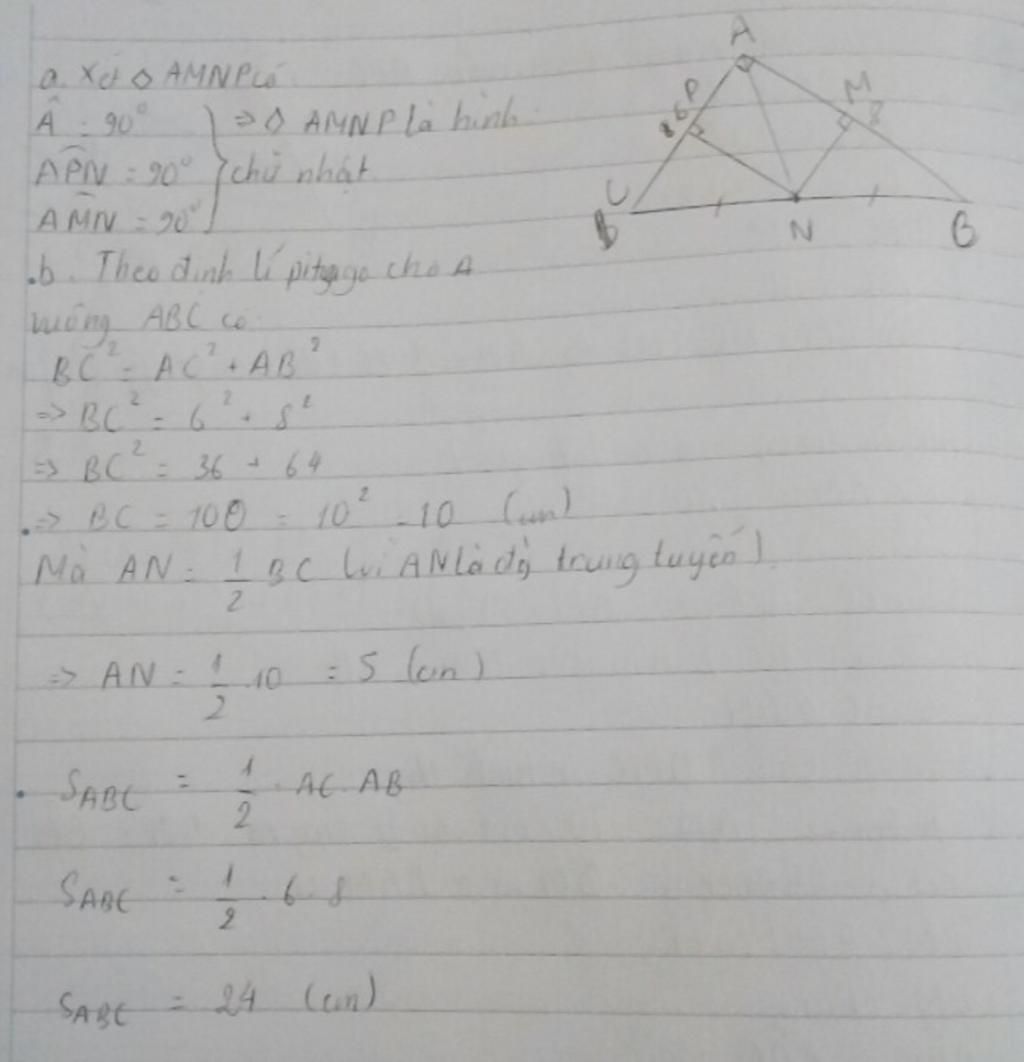 a. Xét ◊ AMNP có
Â = 90°
⇒ ◊ AMNP là hình
APN = 90°
chữ nhật
AMN = 90°
A
P
6
M
8
C
N
B
.b. Theo định lí pitago cho Δ
vuông ABC có
BC² = AC² + AB²
=> BC² = 6² + 8²
=> BC² = 36 + 64
.=> BC = 100 = 10² = 10 (cm)
Mà AN = 1/2 BC (vì AN là đg trung tuyến)
=> AN = 1/2 .10 = 5 (cm)
. SABC = 1/2 . AC. AB
SABC = 1/2 . 6 . 8
SABC = 24 (cm)